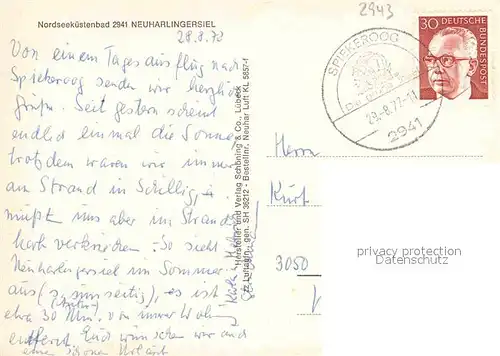 Nordseeküstenbad 2941 NEUHARLINGERSIEL
28.8.72
Von einem Tagesausflug nach
Spiekeroog senden wir herzliche
Grüße. Seit gestern scheint
endlich einmal die Sonne
trotzdem waren wir immer
am Strand in Schillig,
mußten uns aber im Strand-
korb verkriechen. So sieht
Neuharlingersiel im Sommer
aus (s. umseitig), es ist
etwa 30 Min. von unserer Wohnung
entfernt. Euch wünschen wir auch
einen schönen Urlaub
Hersteller und Verlag Schöning & Co., Lübeck
Luftaufn. gen. SH 36212 - Bestellnr. Neuhar Luft KL 5857-f
2943
SPIEKEROOG
28.-8.72-11
2941
30 DEUTSCHE
BUNDESPOST
Herrn
Kurt
3050
privacy protection
Datenschutz